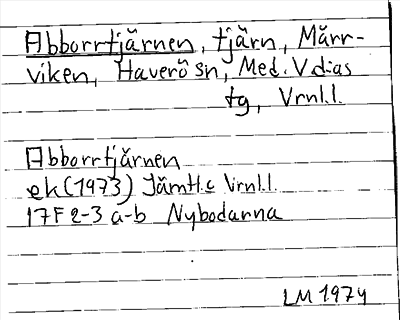 Abborrtjärnen, tjärn, Märr-
viken, Haverö sn, Med. V dias
tg, Vrnl.l.
Abborrtjärnen
ek (1973) Jämtl.c Vrnl.l.
17F 2-3 a-b Nybodarna
LM 1974